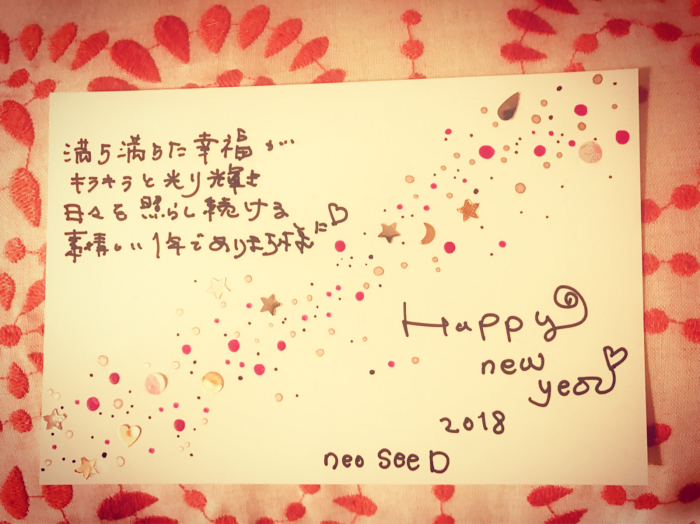 満ち満ちた幸福が…
キラキラと光り輝き
日々を照らし続ける
素晴しい1年でありますように♡
Happy
new
year♡
2018
neo seeD